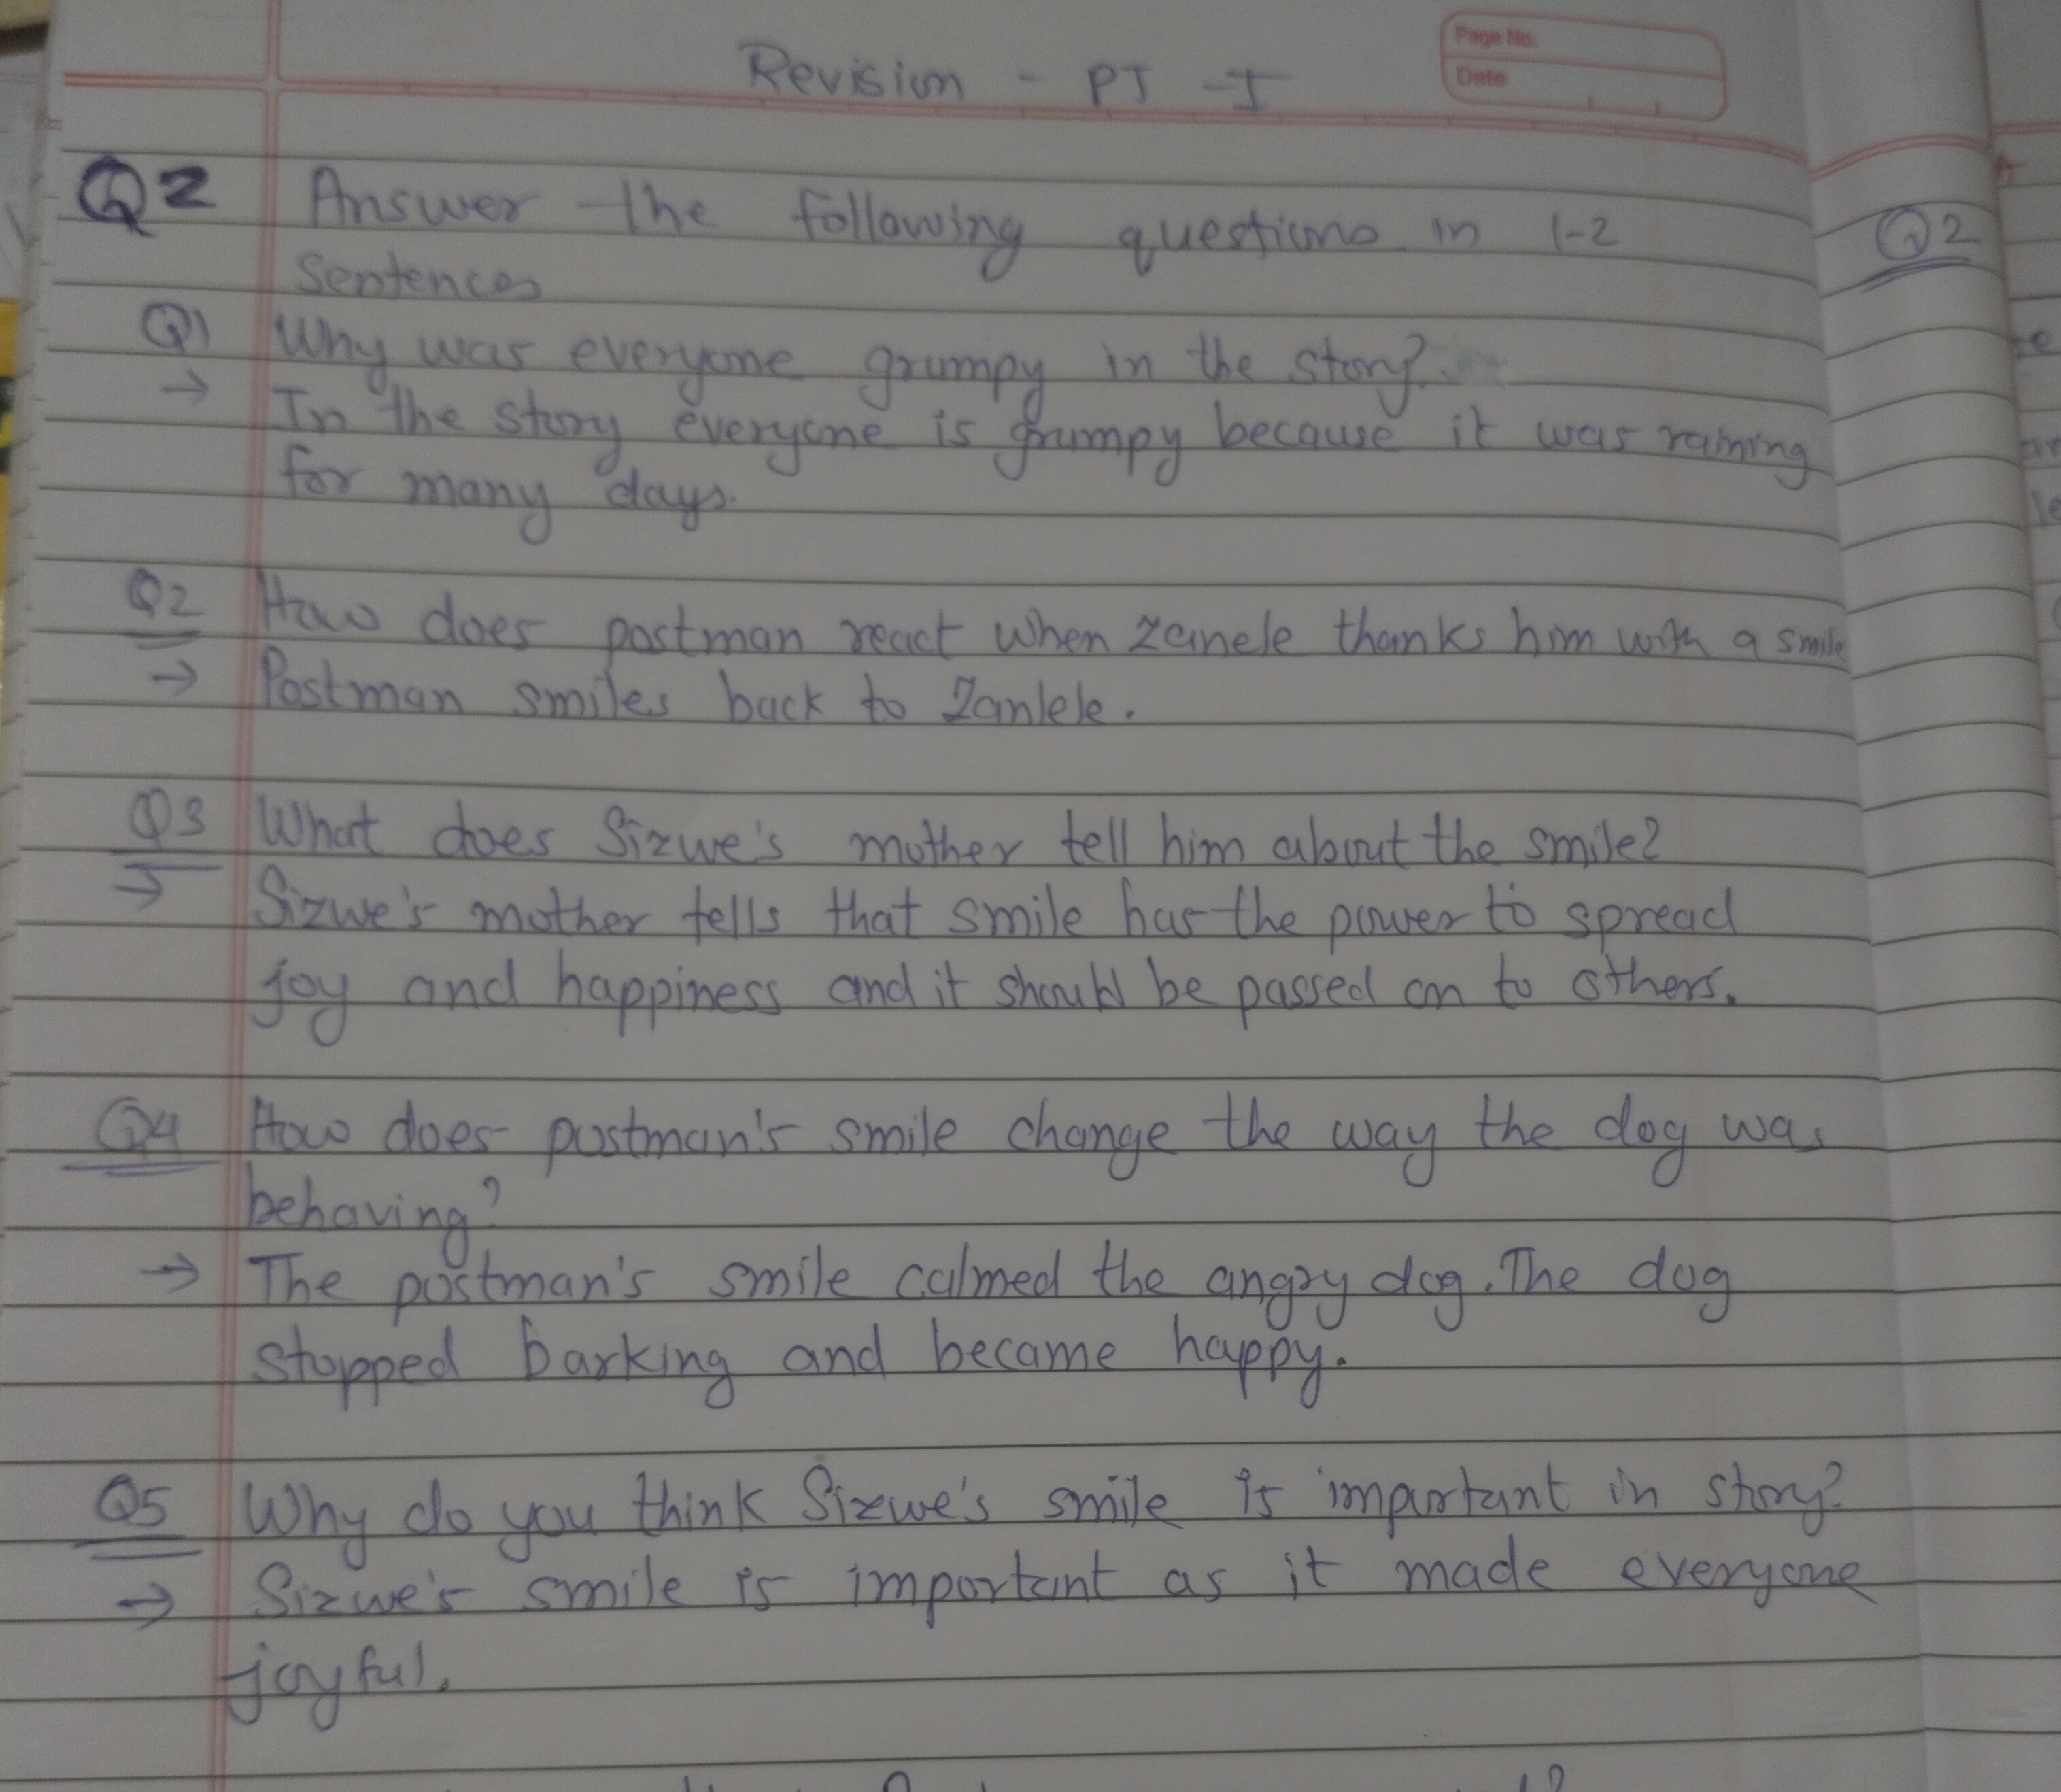 Revision - PT - I
Page No.
Date
Q2 Answer the following questions in 1-2
sentences
Q1 Why was everyone grumpy in the story?
→ In the story everyone is grumpy because it was raining
for many days.
Q2 How does postman react when Zanele thanks him with a smile
→ Postman smiles back to Zanlele.
Q3 What does Sizwe's mother tell him about the smile?
→ Sizwe's mother tells that smile has the power to spread
joy and happiness and it should be passed on to others.
Q4 How does postman's smile change the way the dog was
behaving?
→ The postman's smile calmed the angry dog. The dog
stopped barking and became happy.
Q5 Why do you think Sizwe's smile is important in story?
→ Sizwe's smile is important as it made everyone
joyful.
Q2